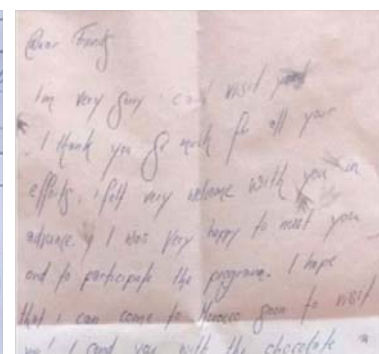 Dear
I'm very sorry can't visit you
I thank you so much for all your
efforts, i felt very welcome with you in
advance. I was very happy to meet you
and to participate the program. I hope
that i can come to Morocco soon to visit
you! I send you with the chocolate a